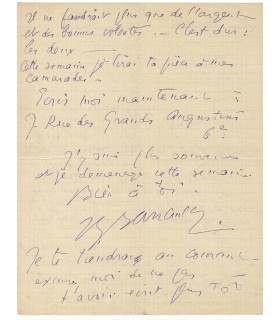 Il ne faudrait plus que de l'argent
et des bonnes volontés. — C'est dur !
les deux —
Cette semaine je lirai ta pièce à mes
camarades —
Ecris moi maintenant :
7 Rue des Grands Augustins
6e
J'y suis plus souvent
et je déménage cette semaine.
Bien à toi.
JL Barrault
Je te tiendrai au courant
excuse moi de ne pas
t'avoir écrit plus tôt